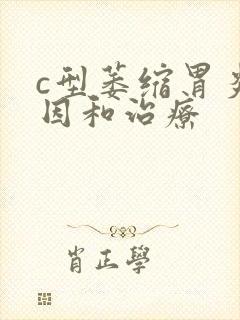 c型萎缩胃炎
因和治疗
肖正学